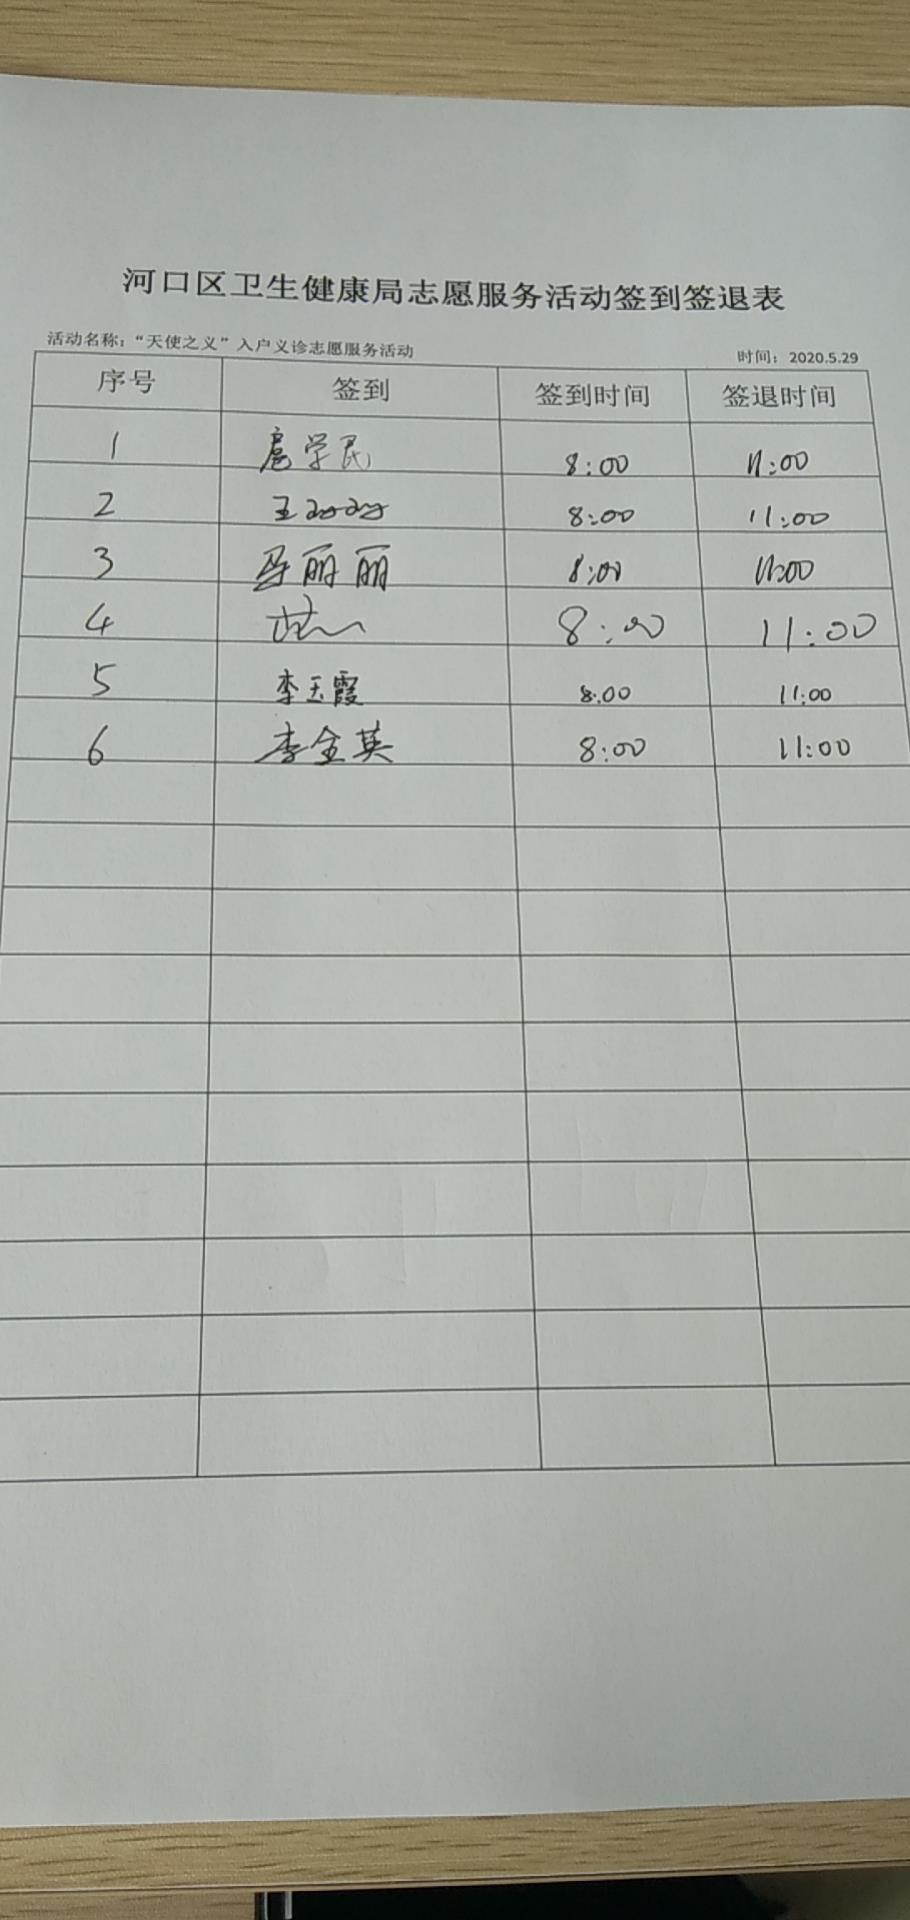 河口区卫生健康局志愿服务活动签到签退表
活动名称：“天使之义”入户义诊志愿服务活动 时间：2020.5.29
序号 签到 签到时间 签退时间
1 扈学民 8:00 11:00
2 王 8:00 11:00
3 马丽丽 8:00 11:00
4 8:00 11:00
5 李玉霞 8:00 11:00
6 李金英 8:00 11:00